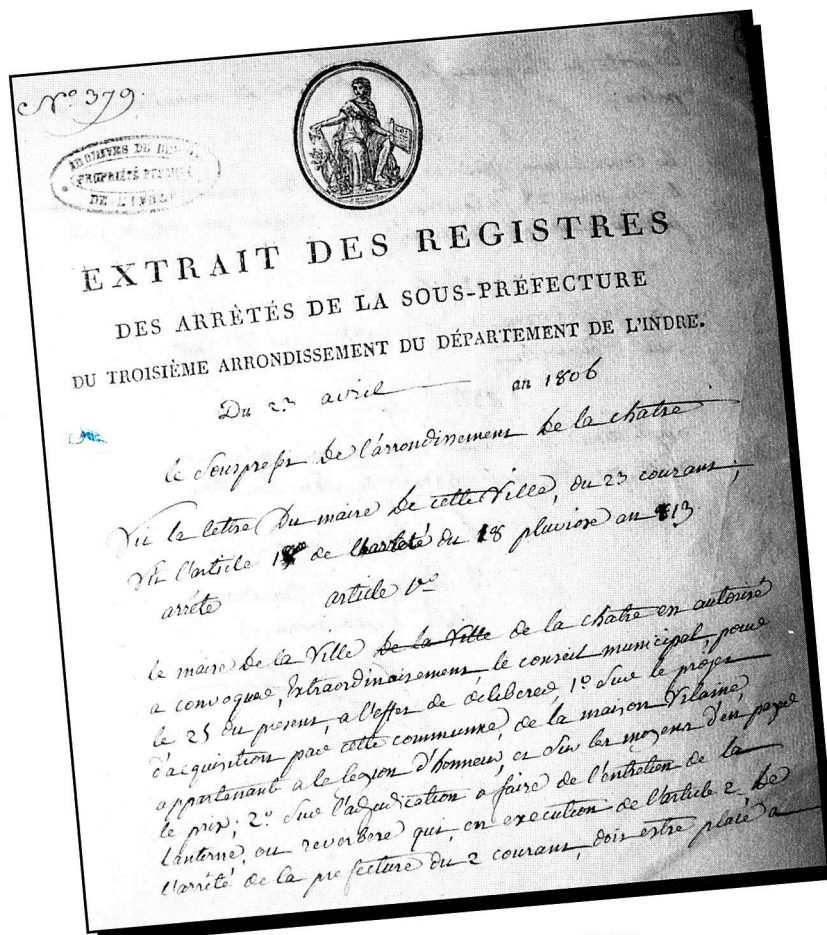 N.º 379.
ARCHIVES DU
PROPRIÉTÉ
DE L'INDRE
EXTRAIT DES REGISTRES
DES ARRÊTÉS DE LA SOUS-PRÉFECTURE
DU TROISIÈME ARRONDISSEMENT DU DÉPARTEMENT DE L'INDRE.
Du 23 avril an 1806
le Sousprefet De l'arrondissement De la chatre
Vu la lettre Du maire De cette Ville, du 23 courant;
Vu l'article 1er de l'arreté du 18 pluviose an 13
arrête article 1er
le maire de la Ville de la Ville de la chatre en autorisé
a convoquer, Extraordinairement, le conseil municipal, pour
le 25 du present, a l'effet de deliberer, 1º Sur le projet
d'acquisition par cette commune, de la maison Vilaine,
appartenant a la legion d'honneur, et Sur les moyens d'en payer
le prix; 2º Sur l'adjudication a faire de l'entretien de la
Lanterne, ou reverbere qui, en execution de l'article 2 De
l'arrêté de la prefecture du 2 courant, doit estre placé a